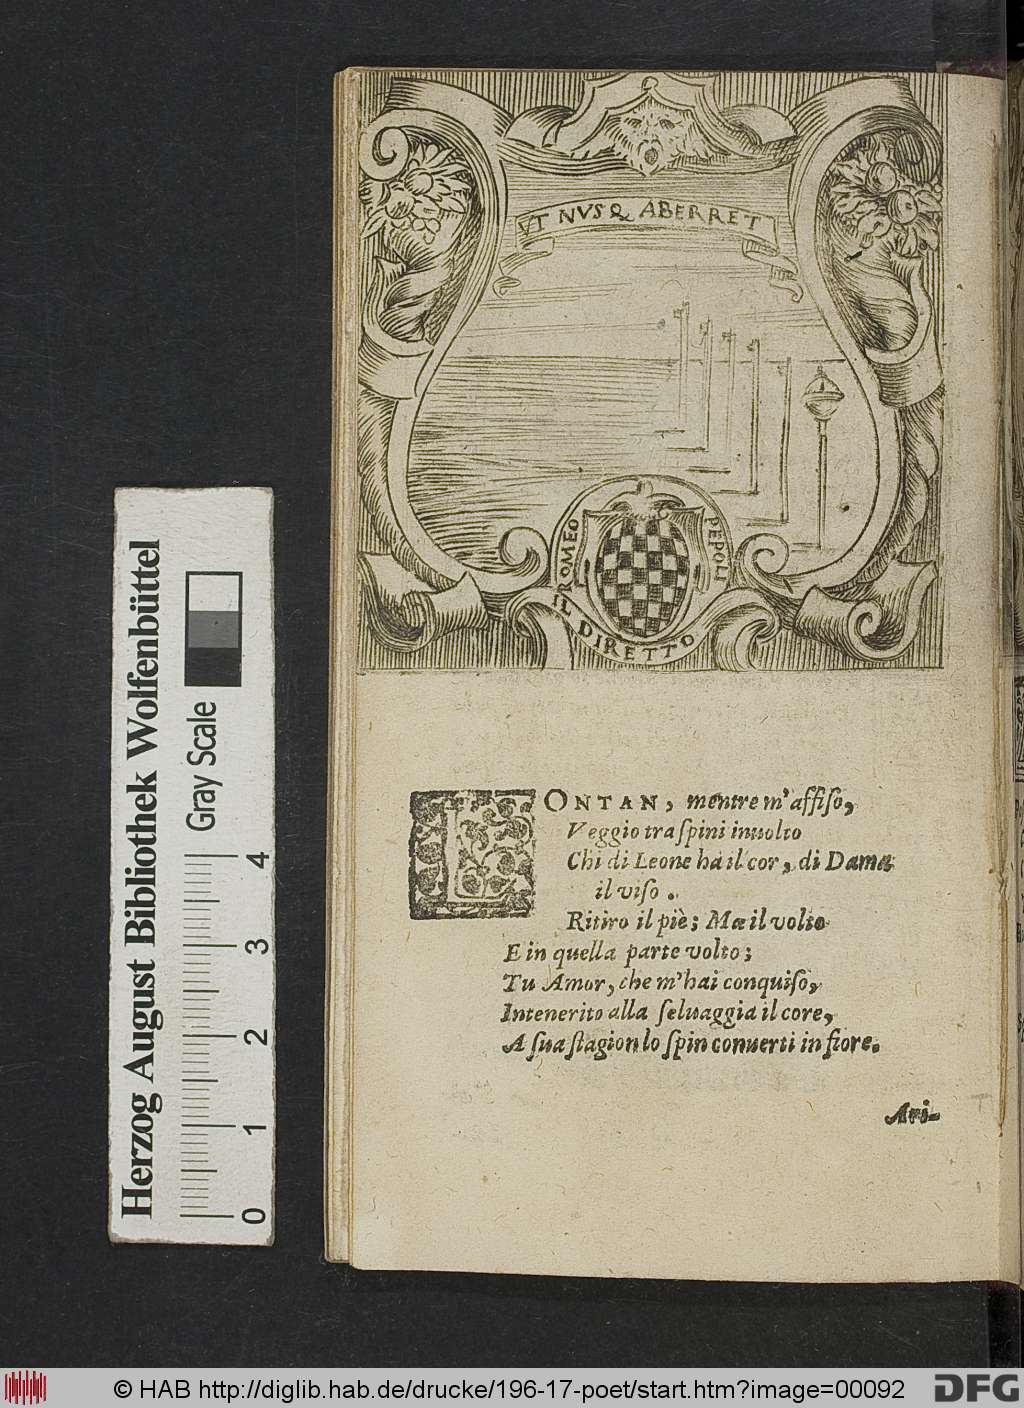 VT NVSQ ABERRET
ROMEO PEPOLI
IL DIRETTO
LONTAN, mentre m'affiso,
Veggio tra spini inuolto
Chi di Leone ha il cor, di Dama
il viso.
Ritiro il piè; Ma il volto
E in quella parte volto;
Tu Amor, che m'hai conquiso,
Intenerito alla seluaggia il core,
A sua stagion lo spin conuerti in fiore.
Ari-
Herzog August Bibliothek Wolfenbüttel
Gray Scale
0 1 2 3 4
© HAB http://diglib.hab.de/drucke/196-17-poet/start.htm?image=00092
DFG